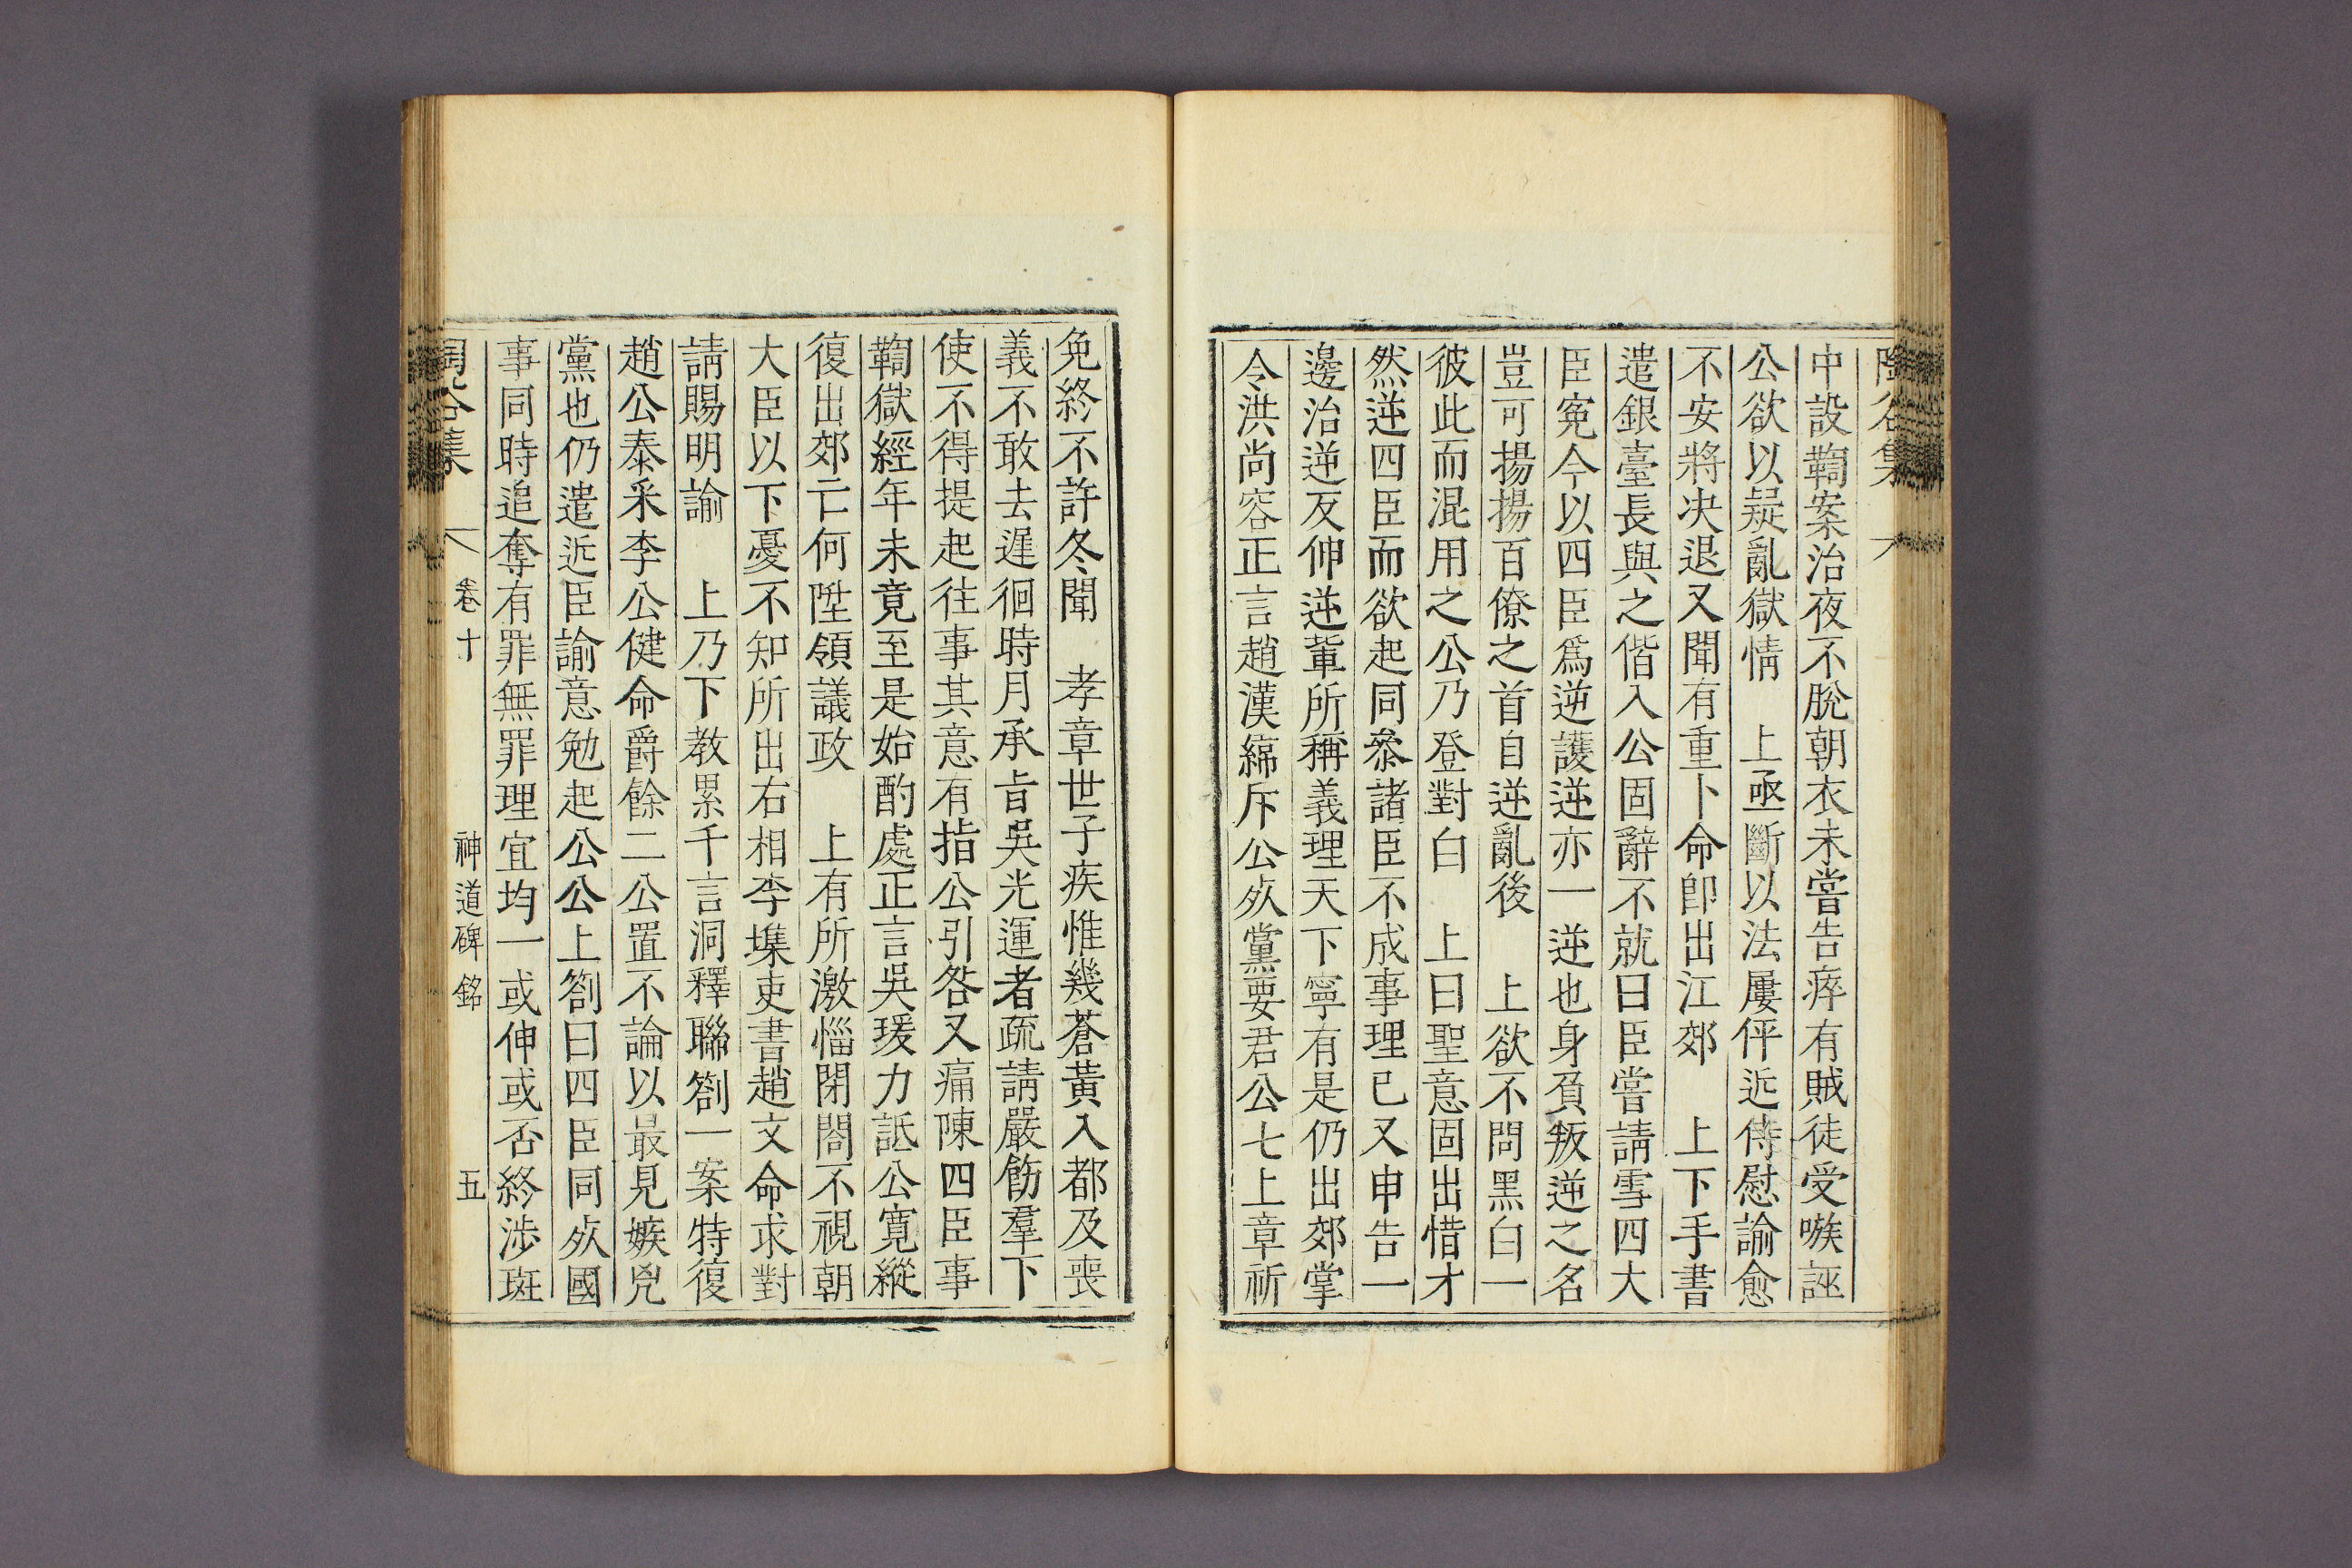 中設鞫案治夜不脫朝衣未嘗告瘁有賊徒受嗾誣
公欲以疑亂獄情　上亟斷以法屢伻近侍慰諭愈
不安將决退又聞有重卜命卽出江郊　上下手書
遣銀臺長與之偕入公固辭不就曰臣嘗請雪四大
臣寃今以四臣爲逆護逆亦一逆也身負叛逆之名
豈可揚揚百僚之首自逆亂後　上欲不問黑白一
彼此而混用之公乃登對白　上曰聖意固出惜才
然逆四臣而欲起同叅諸臣不成事理已又申告一
邊治逆反伸逆輩所稱義理天下寧有是仍出郊掌
令洪尚容正言趙漢緯斥公死黨要君公七上章祈
免終不許冬聞　孝章世子疾惟幾蒼黃入都及喪
義不敢去遅徊時月承旨吳光運者疏請嚴飭羣下
使不得提起往事其意有指公引咎又痛陳四臣事
鞫獄經年未竟至是始酌處正言吳瑗力詆公寬縱
復出郊亡何陞領議政　上有所激惱閉閤不視朝
大臣以下憂不知所出右相李㙫吏書趙文命求對
請賜明諭　上乃下教累千言洞釋聯劄一案特復
趙公泰采李公健命爵餘二公置不論以最見嫉兇
黨也仍遣近臣諭意勉起公公上劄曰四臣同死國
事同時追奪有罪無罪理宜均一或伸或否終涉斑
卷十
神道碑銘
五